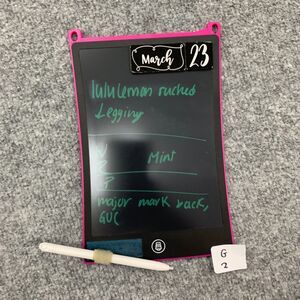 March 23
lululemon ruched
Legging
Mint
major mark back,
GUC
G
2